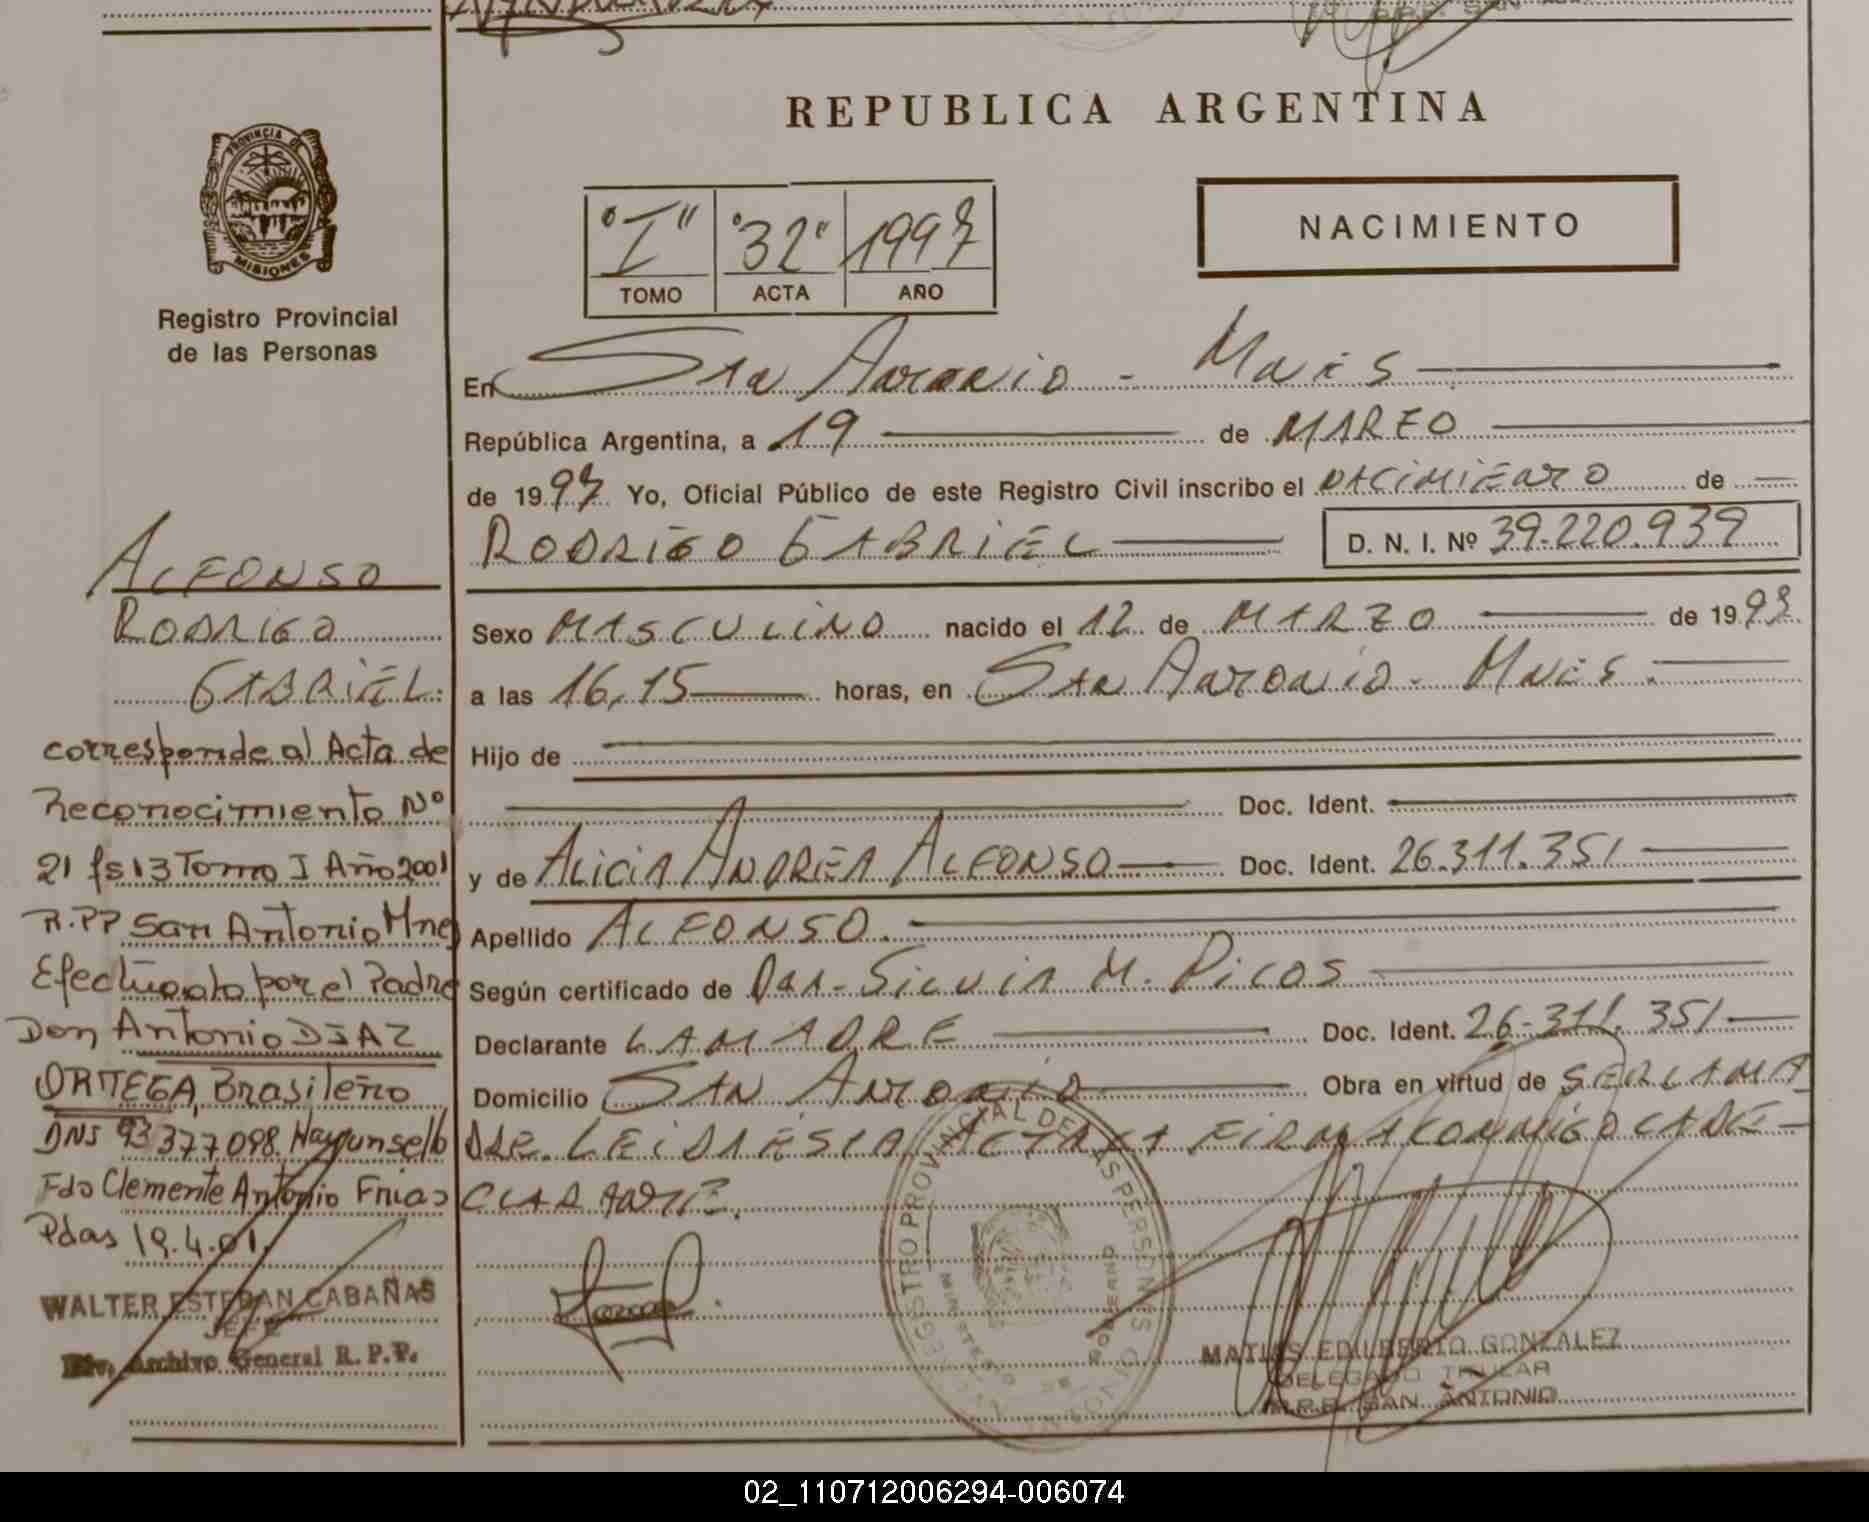 PROVINCIA DE
MISIONES
Registro Provincial
de las Personas
REPUBLICA ARGENTINA
"I" "32" 1997
TOMO ACTA AÑO
NACIMIENTO
En San Antonio - Mnes
República Argentina, a 19 de MARZO
de 1997 Yo, Oficial Público de este Registro Civil inscribo el NACIMIENTO de
RODRIGO GABRIEL D. N. I. Nº 39.220.939
Sexo MASCULINO nacido el 12 de MARZO de 1997
a las 16,15 horas, en San Antonio - Mnes.
Hijo de
Doc. Ident.
y de ALICIA ANDREA ALFONSO Doc. Ident. 26.311.351
Apellido ALFONSO.
Según certificado de Dra. Silvia M. Picos
Declarante LA MADRE Doc. Ident. 26.311.351
Domicilio SAN ANTONIO Obra en virtud de SER LA MA
DRE. LEIDA ESTA ACTA LA FIRMA CONMIGO LA DE-
CLARANTE.
ALFONSO
RODRIGO
GABRIEL.
corresponde al Acta de
Reconocimiento Nº
21 fs 13 Tomo I Año 2001
R.PP San Antonio Mnes
Efectuado por el Padre
Don Antonio DIAZ
ORTEGA, Brasileño
DNI 93377098. Hay un sello
Fdo Clemente Antonio Frias
Pdas 19.4.01.
WALTER ESTEBAN CABAÑAS
JEFE
Div. Archivo General R. P. P.
REGISTRO PROVINCIAL DE LAS PERSONAS
MINISTERIO DE GOBIERNO
MATIAS EDILBERTO GONZALEZ
DELEGADO TITULAR
R.P.P. SAN ANTONIO
02_110712006294-006074